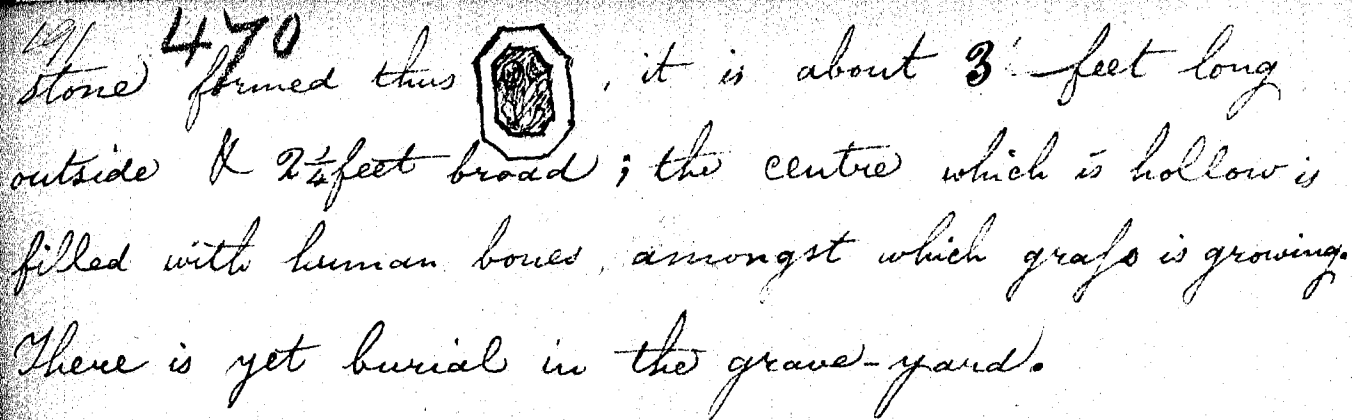 191 470
stone formed thus , it is about 3 feet long
outside & 2¼ feet broad ; the centre which is hollow is
filled with human bones, amongst which graſs is growing.
There is yet burial in the grave-yard.